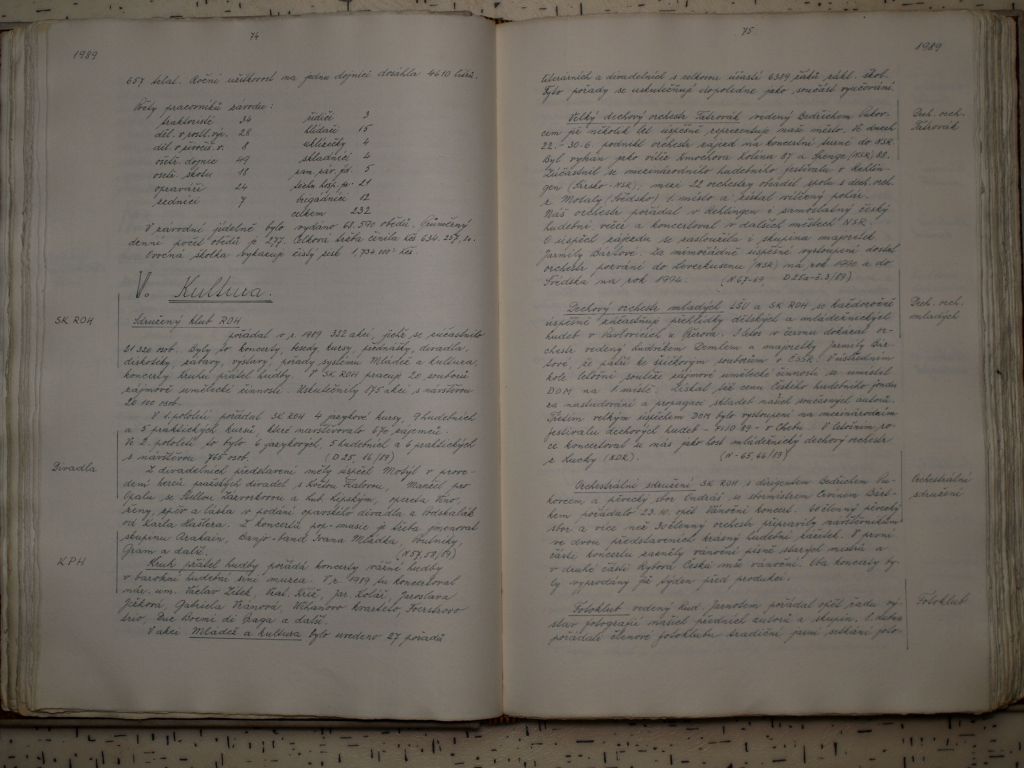 74
1989
657 telat. Roční užitkovost na jednu dojnici dosáhla 4610 litrů.
Počty pracovníků závodu:
traktoristé 34 řidiči 3
děl. v rostl. výr. 28 hlídači 15
děl. v živoč. v. 8 uklizečky 4
ošetř. dojnic 49 skladníci 4
ošetř. skotu 18 5
opraváři 24 techn. hosp. pr. 21
sedníci 7 brigádníci 12
celkem 232
V závodní jídelně bylo vydáno 68.590 obědů. Průměrný
denní počet obědů je 277. Celková tržba činila Kčs 634.257,
Ovocná školka vykazuje čistý zisk 1,734.000 Kčs.
V. Kultura.
SK ROH
Sdružený klub ROH
pořádal v r. 1989 332 akcí, jichž se zúčastnilo
31 320 osob. Byly to koncerty, besedy, kursy, přednášky, divadla,
diskotéky, zábavy, výstavy, pořady systému Mládež a kultura,
koncerty kruhu přátel hudby. V SK ROH pracuje 20 souborů
zájmové umělecké činnosti. Uskutečnily 175 akcí s návštěvou
20 100 osob.
V 1. pololetí pořádal SK ROH 4 jazykové kursy, 9 hudebních
a 5 praktických kursů, které navštěvovalo 670 zájemců.
Ve 2. pololetí to bylo 6 jazykových, 5 hudebních a 6 praktických
s návštěvou 765 osob. (D 25, 16/89)
Divadla
Z divadelních představení měly úspěch Motýl v prove-
dení herců pražských divadel s Květou Fialovou, Manžel pro
Opalu se Stellou Zázvorkovou a Lub. Lipským, opereta Víno,
ženy, zpěv a láska v podání opavského divadla a Vodskalák
od Karla Hašlera. Z koncertů pop-music je třeba jmenovat
skupinu Arakain, Banjo-band Ivana Mládka, Poutníky,
Gram a další. (N 57, 58/89)
KPH
Kruh přátel hudby pořádá koncerty vážné hudby
v barokní hudební síni muzea. V r. 1989 zde koncertoval
nár. um. Václav Žilek, Vrat. Kříž, Jar. Kolář, Jaroslava
Gabriela Vránová, Vlachovo kvarteto, Foerstrovo
trio, Due Boemi di Praga a další.
V akci Mládež a kultura bylo uvedeno 27 pořadů
75
1989
literárních a divadelních s celkovou účastí 6389 žáků zákl. škol.
Tyto pořady se uskutečňují dopoledne jako součást vyučování.
Dech. orch.
Tatrovák
Velký dechový orchestr Tatrovák vedený Bedřichem Pukov-
cem již několik let úspěšně reprezentuje naše město. Ve dnech
22.-30.6. podnikl orchestr zájezd na koncertní turné do NSR.
Byl vybrán jako vítěz Kmochova Kolína 87 a Prenge (NSR) 88.
Zúčastnil se mezinárodního hudebního festivalu v Rehlin-
gen (Sársko-NSR), mezi 22 orchestry obsadil spolu s dech. orch.
z Motaly (Švédsko) 1. místo a získal vítězný pohár.
Náš orchestr pořádal v Rehlingenu v samostatný český
hudební večer a koncertoval v dalších městech NSR.
O úspěch zájezdu se zasloužila i skupina mažoretek
Jarmily Bartlové. Za mimořádně úspěšné vystoupení dostal
orchestr pozvání do Leverkusenu (NSR) na rok 1990 a do
Švédska na rok 1991. (N 67-69, D 25a-3.8/89)
Dech. orch.
mladých
Dechový orchestr mladých LŠU a SK ROH se každoročně
úspěšně zúčastňuje přehlídky dětských a mládežnických
hudeb v Lavlovicích u Přerova. I letos v červnu dokázal or-
chestr vedený Ludvíkem Zemlem a mažoretky Jarmily Bar-
tlové, že patří ke špičkovým souborům v ČSSR. V ústředním
kole letošní soutěže zájmové umělecké činnosti se umístil
DOM na 1. místě. Získal též cenu Českého hudebního fondu
za nastudování a propagaci skladeb našich současných autorů.
Třetím velkým úspěchem DOM bylo vystoupení na mezinárodním
festivalu dechových hudeb - 7.10 89 - v Chebu. V letošním ro-
ce koncertoval u nás jako host mládežnický dechový orchestr
z Lucky (NDR). (N-65,66/89)
Orchestrální
sdružení
Orchestrální sdružení SK ROH s dirigentem Bedřichem Pu-
kovcem a pěvecký sbor Ondráš se sbormistrem Ervínem Bárt-
kem pořádal 23.10. opět Vánoční koncert. 80 členný pěvecký
sbor a více než 30 členný orchestr připravily návštěvníkům
ve dvou představeních krásný hudební zážitek. V první
části koncertu zazněly vánoční písně starých mistrů a
v druhé části Rybova Česká mše vánoční. Oba koncerty by-
ly vyprodány již týden před produkcí.
Fotoklub
Fotoklub vedený Rud. Jarnotem pořádal opět řadu vý-
stav fotografií našich předních autorů a skupin. V lednu
pořádali členové fotoklubu tradiční první setkání foto-